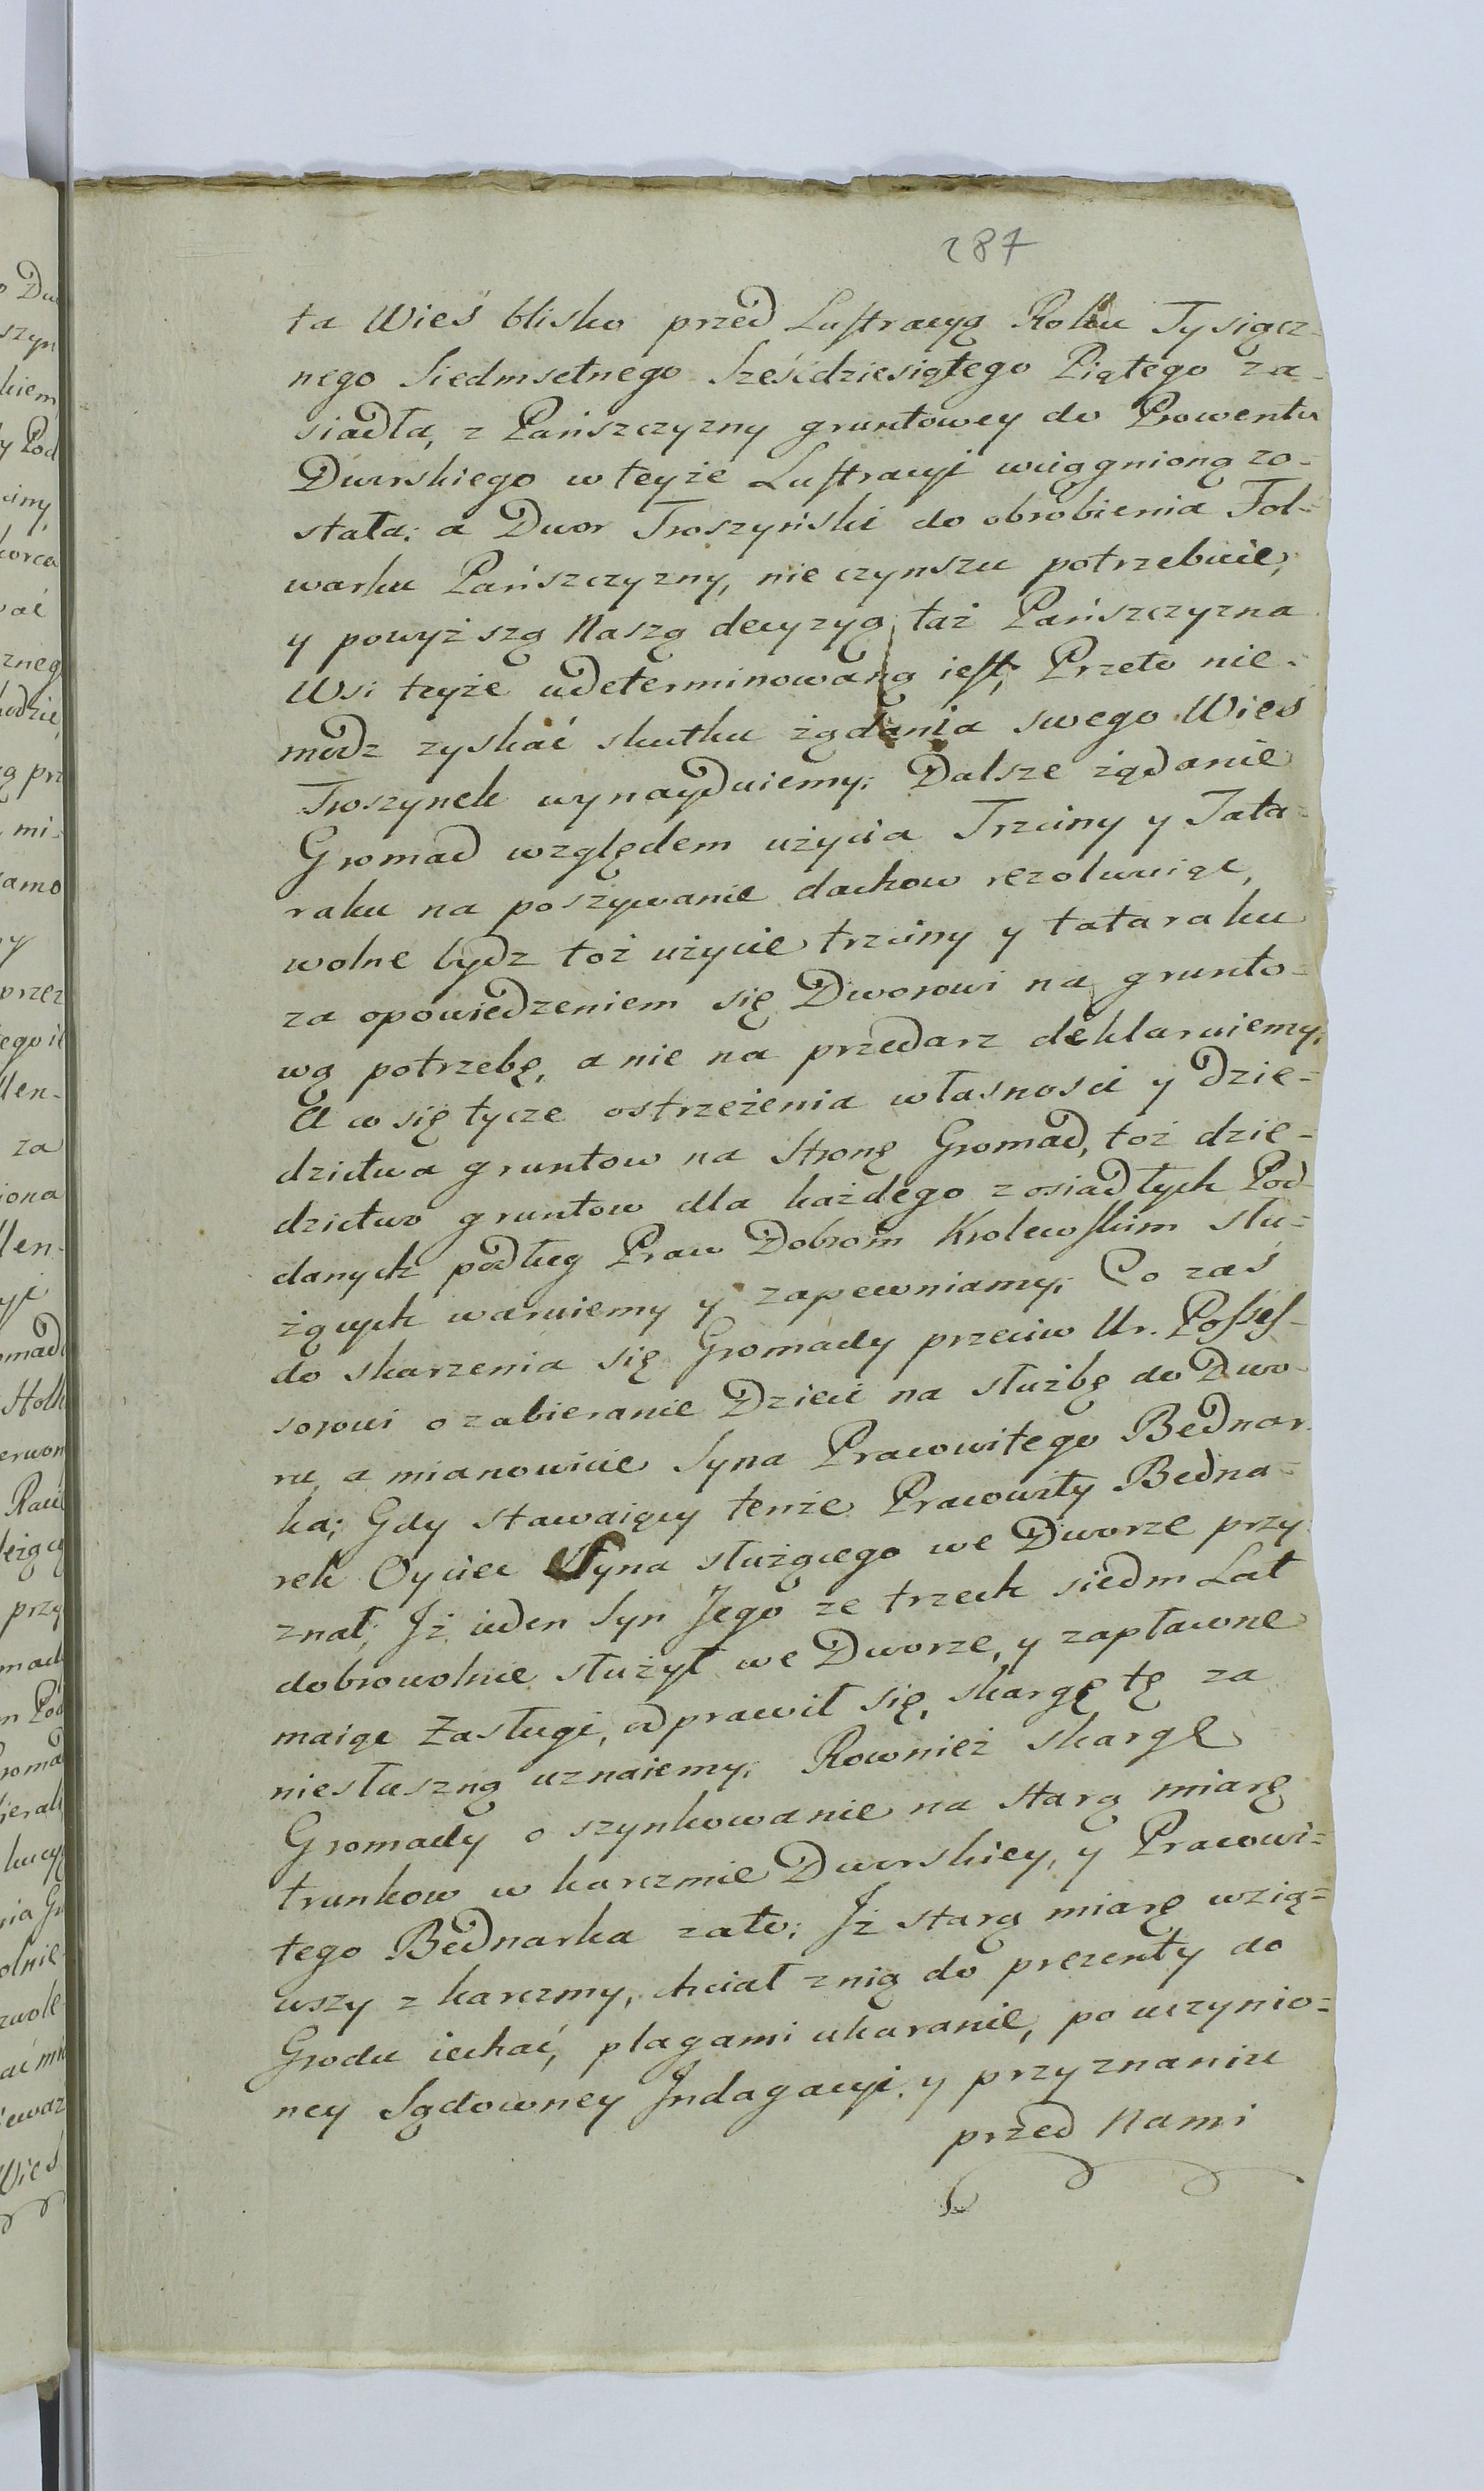 287
ta Wieś blisko przed Lustracyą Roku Tysiącz-
nego Siedmsetnego Sześćdziesiątego Piątego za-
siadła, z Pańszczyzny gruntowey do Prowentu
Dworskiego w teyże Lustracyi wciągnioną zo-
stała: a Dwor Troszyński do obrobienia Fol-
warku Pańszczyzny, nie czynszu potrzebuie,
y powyższą Naszą decyzyą taż Pańszczyzna
Wsi teyże udeterminowaną iest, Przeto nie-
modz zyskać skutku żądania swego Wieś
Troszynek wynayduiemy; Dalsze żądanie
Gromad względem użycia Trzciny y Tata-
raku na poszywanie dachow rezolwuiąc,
wolne bydz toż użycie trzciny y tataraku
za opowiedzeniem się Dworowi na grunto-
wą potrzebę, a nie na przedarz deklaruiemy;
A co się tycze ostrzeżenia własności y dzie-
dzictwa gruntow na Stronę Gromad, toż dzie-
dzictwo gruntow dla każdego z osiadłych Pod-
danych podług Praw Dobrom Krolewskim słu-
żących waruiemy y zapewniamy; Co zaś
do skarzenia się Gromady przeciw Ur. Posses-
sorowi o zabieranie Dzieci na służbę do Dwo-
ru, a mianowicie Syna Pracowitego Bednar-
ka; Gdy stawaiący tenże Pracowity Bedna-
rek Oyciec Syna służącego we Dworze przy-
znał; Iż ieden Syn Jego ze trzech siedm Lat
dobrowolnie służył we Dworze, y zapłacone
maiąc Zasługi, odprawił się, skargę tę za
niesłuszną uznaiemy; Rownież skargę
Gromady o szynkowanie na starą miarę
trunkow w karczmie Dworskiey, y Pracowi-
tego Bednarka zato; Iż starą miarę wzią-
wszy z karczmy, chciał z nią do prezenty do
Grodu iechać, plagami ukaranie, po uczynio-
ney Sądowney Indagacyi y przyznaniu
przed Nami